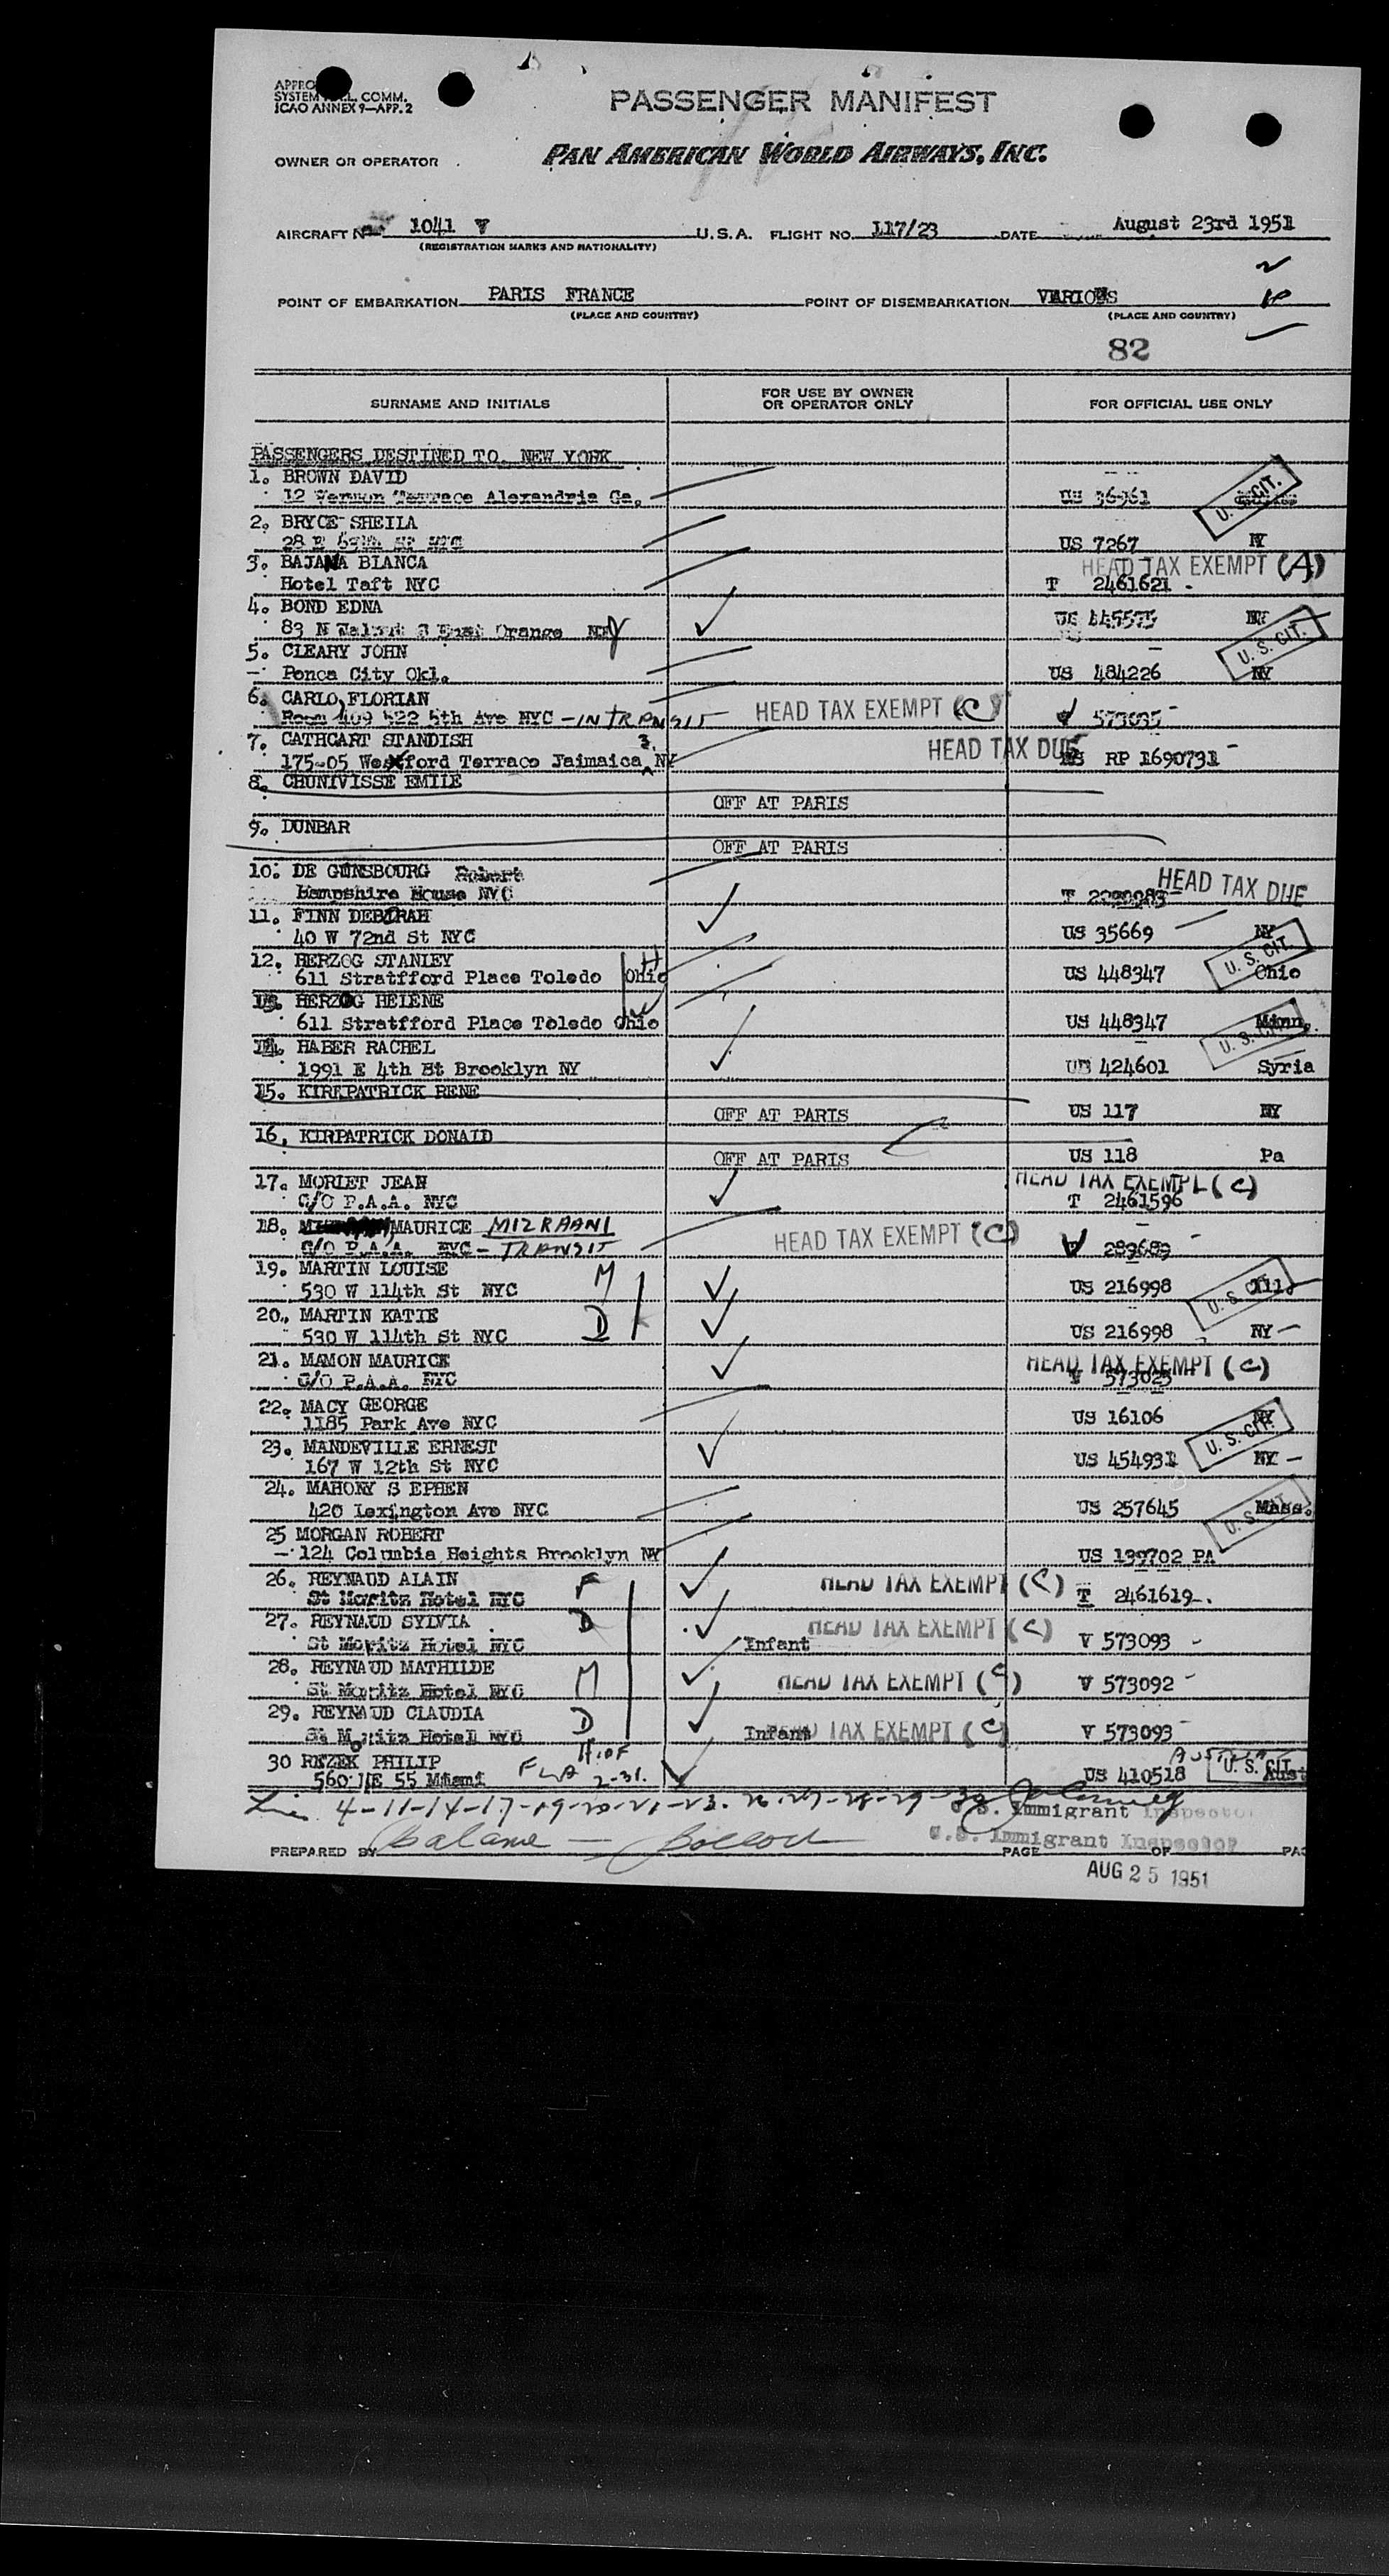 SYSTEM COMM.
ICAO ANNEX 9—APP. 2
PASSENGER MANIFEST
OWNER OR OPERATOR
PAN AMERICAN WORLD AIRWAYS, INC.
AIRCRAFT 1041 V U.S.A. FLIGHT NO. 117/23 DATE August 23rd 1951
(REGISTRATION MARKS AND NATIONALITY)
POINT OF EMBARKATION PARIS FRANCE POINT OF DISEMBARKATION VARIOUS
(PLACE AND COUNTRY) (PLACE AND COUNTRY)
82
SURNAME AND INITIALS FOR USE BY OWNER OR OPERATOR ONLY FOR OFFICIAL USE ONLY
PASSENGERS DESTINED TO NEW YORK
1. BROWN DAVID
12 Vernon Terrace Alexandria Ga. US 36961 U. S. CIT.
2. BRYCE SHEILA
28 E St NYC US 7267 NY
3. BAJANA BIANCA HEAD TAX EXEMPT (A)
Hotel Taft NYC T 2461621 -
4. BOND EDNA
83 N Orange US
5. CLEARY JOHN U. S. CIT.
Ponca City Okl. US 484226 NY
6. CARLO, FLORIAN HEAD TAX EXEMPT (C)
Room 409 522 5th Ave NYC - IN TRANSIT
7. CATHCART STANDISH 3. HEAD TAX DUE
175-05 Wexford Terrace Jaimaica NY RP 1690731 -
8. CHUNIVISSE EMILE
OFF AT PARIS
9. DUNBAR
OFF AT PARIS
10. DE GUNSBOURG Robert HEAD TAX DUE
Hampshire House NYC T
11. FINN DEBORAH
40 W 72nd St NYC US 35669 NY
12. HERZOG STANLEY H U. S. CIT.
611 Stratfford Place Toledo Ohio US 448347 Ohio
13. HERZOG HELENE W
611 Stratfford Place Toledo Ohio US 448347 Minn. U. S. CIT.
14. HABER RACHEL
1991 E 4th St Brooklyn NY US 424601 Syria
15. KIRKPATRICK RENE
OFF AT PARIS US 117 NY
16. KIRPATRICK DONALD
OFF AT PARIS US 118 Pa
17. MORLET JEAN HEAD TAX EXEMPT (C)
C/O P.A.A. NYC T 2461596
18. MAURICE MIZRAANI HEAD TAX EXEMPT (C)
C/O P.A.A. NYC - TRANSIT V 289689 -
19. MARTIN LOUISE M
530 W 114th St NYC US 216998 Ill. U. S. CIT.
20. MARTIN KATIE D
530 W 114th St NYC US 216998 NY —
21. MAMON MAURICE HEAD TAX EXEMPT (C)
C/O P.A.A. NYC V 573025
22. MACY GEORGE
1185 Park Ave NYC US 16106 NY U. S. CIT.
23. MANDEVILLE ERNEST
167 W 12th St NYC US 454931 NY —
24. MAHONY S EPHEN
420 Lexington Ave NYC US 257645 Mass. U. S. CIT.
25 MORGAN ROBERT
124 Columbia Heights Brooklyn NY US 139702 PA
26. REYNAUD ALAIN F HEAD TAX EXEMPT (C)
St Moritz Hotel NYC T 2461619 .
27. REYNAUD SYLVIA D HEAD TAX EXEMPT (C)
St Moritz Hotel NYC Infant V 573093 -
28. REYNAUD MATHILDE M HEAD TAX EXEMPT (C)
St Moritz Hotel NYC V 573092 -
29. REYNAUD CLAUDIA D HEAD TAX EXEMPT (C)
St Moritz Hotel NYC Infant V 573093 -
30 REZEK PHILIP
560 NE 55 Miami FLA H. of 2-31. US 410518 U. S. CIT. Aust
U.S. Immigrant Inspector
U.S. Immigrant Inspector
PREPARED BY PAGE OF
AUG 25 1951